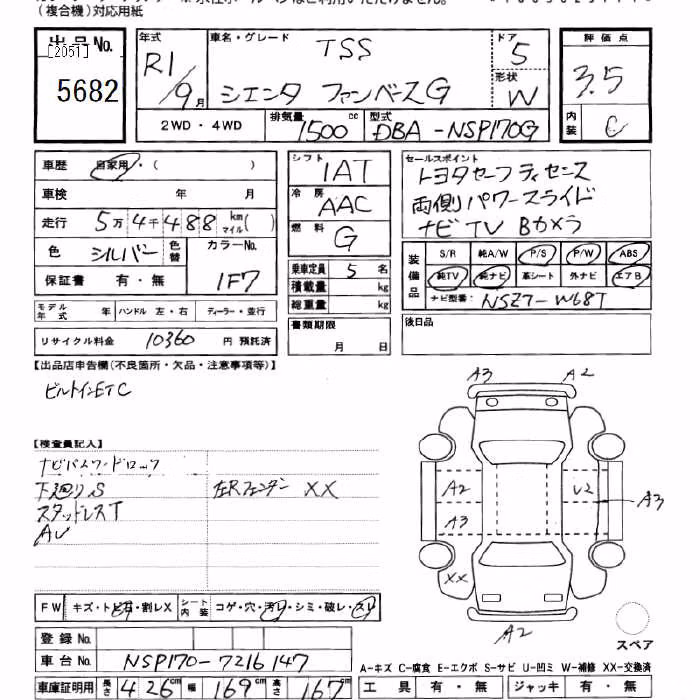 (複合機)対応用紙
出品No.
[2051]
5682
年式
R1/9月
車名・グレード
TSS
シエンタ ファンベースG
ドア
5
形状
W
評価点
3.5
内装
C
2WD・4WD
排気量
1500cc
型式
DBA-NSP170G
車歴 自家用・( )
車検 年 月
走行 5万4千488km マイル( )
色 シルバー 色替 カラーNo. 1F7
保証書 有・無
モデル年式 年 ハンドル 左・右 ディーラー・並行
リサイクル料金 10360 円 預託済
シフト 1AT
冷房 AAC
燃料 G
乗車定員 5 名
積載量 kg
総重量 kg
書類期限
月 日
セールスポイント
トヨタセーフティセンス
両側パワースライド
ナビTV Bカメラ
装備品
S/R 純A/W P/S P/W ABS
純TV 純ナビ 革シート 外ナビ エアB
ナビ型番: NSZ7-W68T
後日品
【出品店申告欄(不良箇所・欠品・注意事項等)】
ビルトインETC
【検査員記入】
ナビパスワードロック
下廻りS 左Rフェンダー XX
スタッドレスT
AU
A3 A2
A2 U2 A3
A3
XX
A2
スペア
FW キズ・トビ石・割レX シート内装 コゲ・穴・汚レ・シミ・破レ・スレ
登録No.
車台No. NSP170-7216147
車庫証明用 長さ 426cm 幅 169cm 高さ 167cm
A-キズ C-腐食 E-エクボ S-サビ U-凹ミ W-補修 XX-交換済
工具 有・無 ジャッキ 有・無